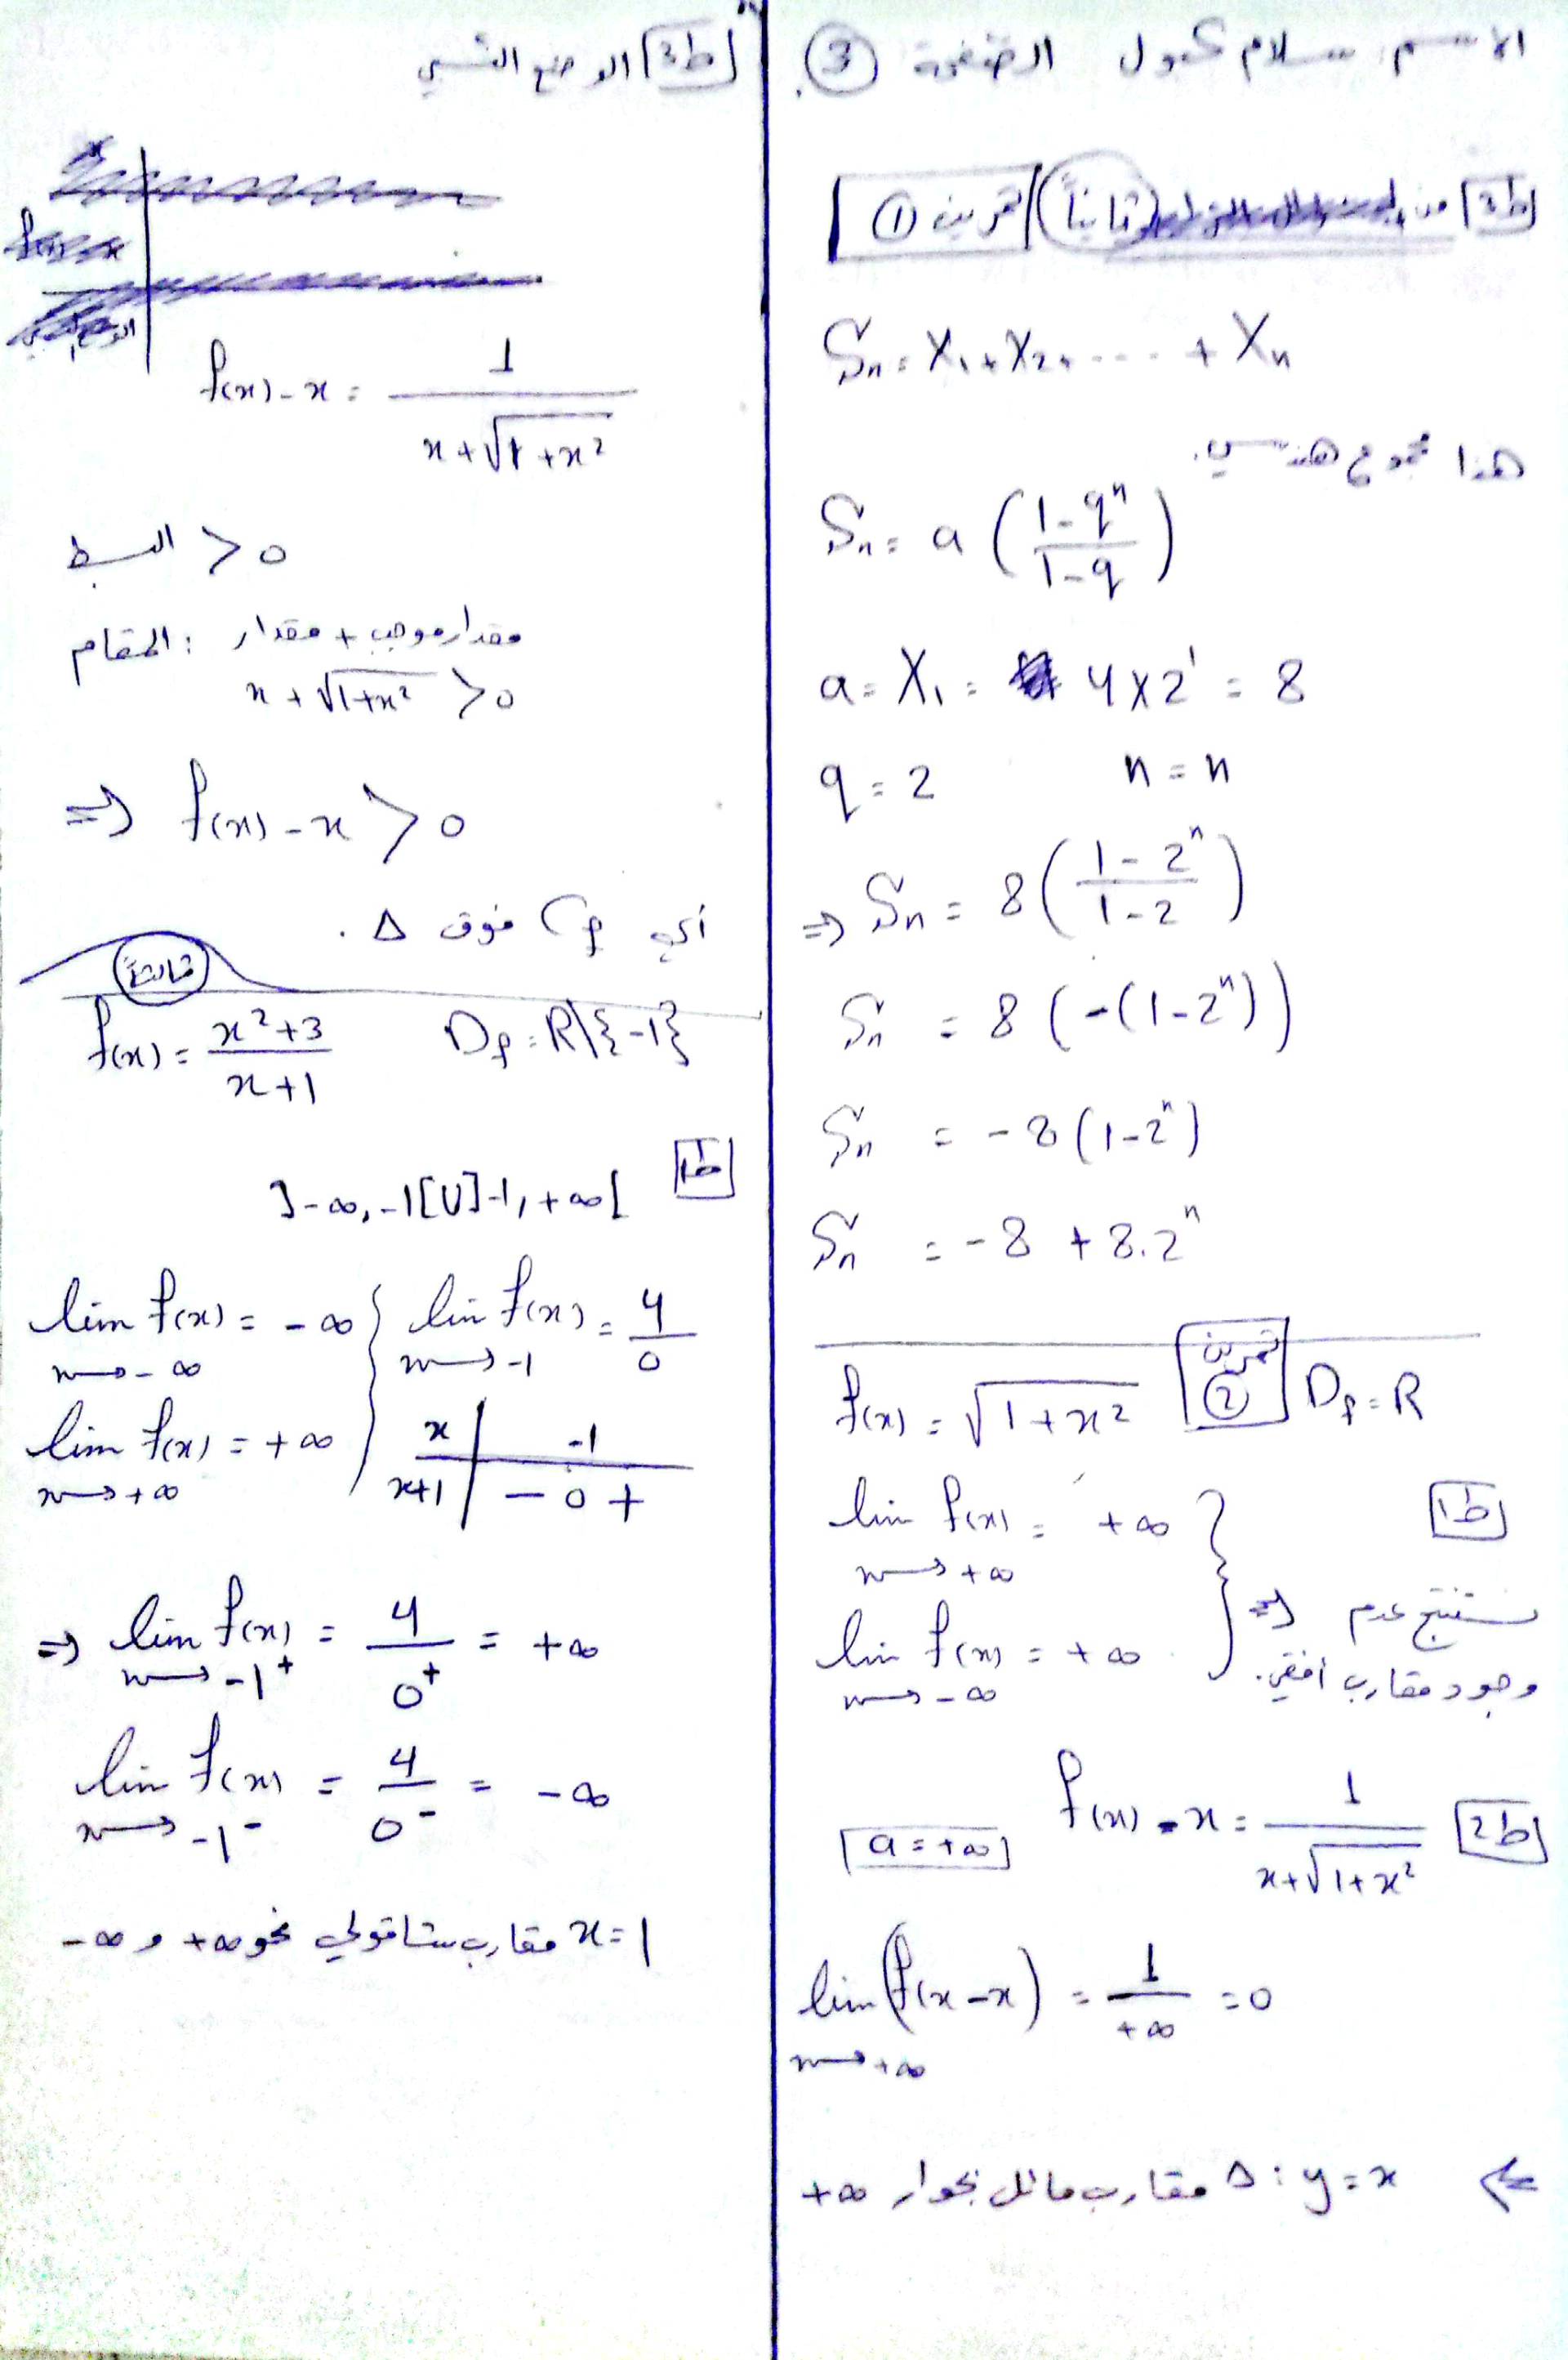 الاسم سلام كبول الصفحة ③
ط3 من ثانياً تمرين ①
Sn = X₁ + X₂ + .... + Xn
هذا مجموع هندسي.
Sn = a ( (1-qⁿ)/(1-q) )
a = X₁ = 4 × 2¹ = 8
q = 2 n = n
⇒ Sn = 8 ( (1-2ⁿ)/(1-2) )
Sn = 8 (-(1-2ⁿ))
Sn = -8 (1-2ⁿ)
Sn = -8 + 8.2ⁿ
f(x) = √(1+x²) تمرين ② D_f = R
ط1
lim f(x) = +∞
x→+∞
lim f(x) = +∞
x→-∞
⇒ نستنتج عدم
وجود مقارب أفقي.
ط2 f(x) - x = 1/(x+√(1+x²))
a = +∞
lim (f(x-x) = 1/+∞ = 0
x→+∞
⇐ Δ : y = x مقارب مائل بجوار +∞
ط3 الوضع النسبي
f(x) - x = 1/(x+√(1+x²))
البسط > 0
المقام : مقدار + مقدار موجب
x + √(1+x²) > 0
⇒ f(x) - x > 0
أي C_f فوق Δ .
ثالثاً
f(x) = (x²+3)/(x+1) D_f = R\{-1}
ط1
]-∞, -1[ U ]-1, +∞[
lim f(x) = -∞
x→-∞
lim f(x) = +∞
x→+∞
lim f(x) = 4/0
x→-1
x | -1
x+1 | - 0 +
⇒ lim f(x) = 4/0⁺ = +∞
x→-1⁺
lim f(x) = 4/0⁻ = -∞
x→-1⁻
x = 1 مقارب شاقولي نحو +∞ و -∞